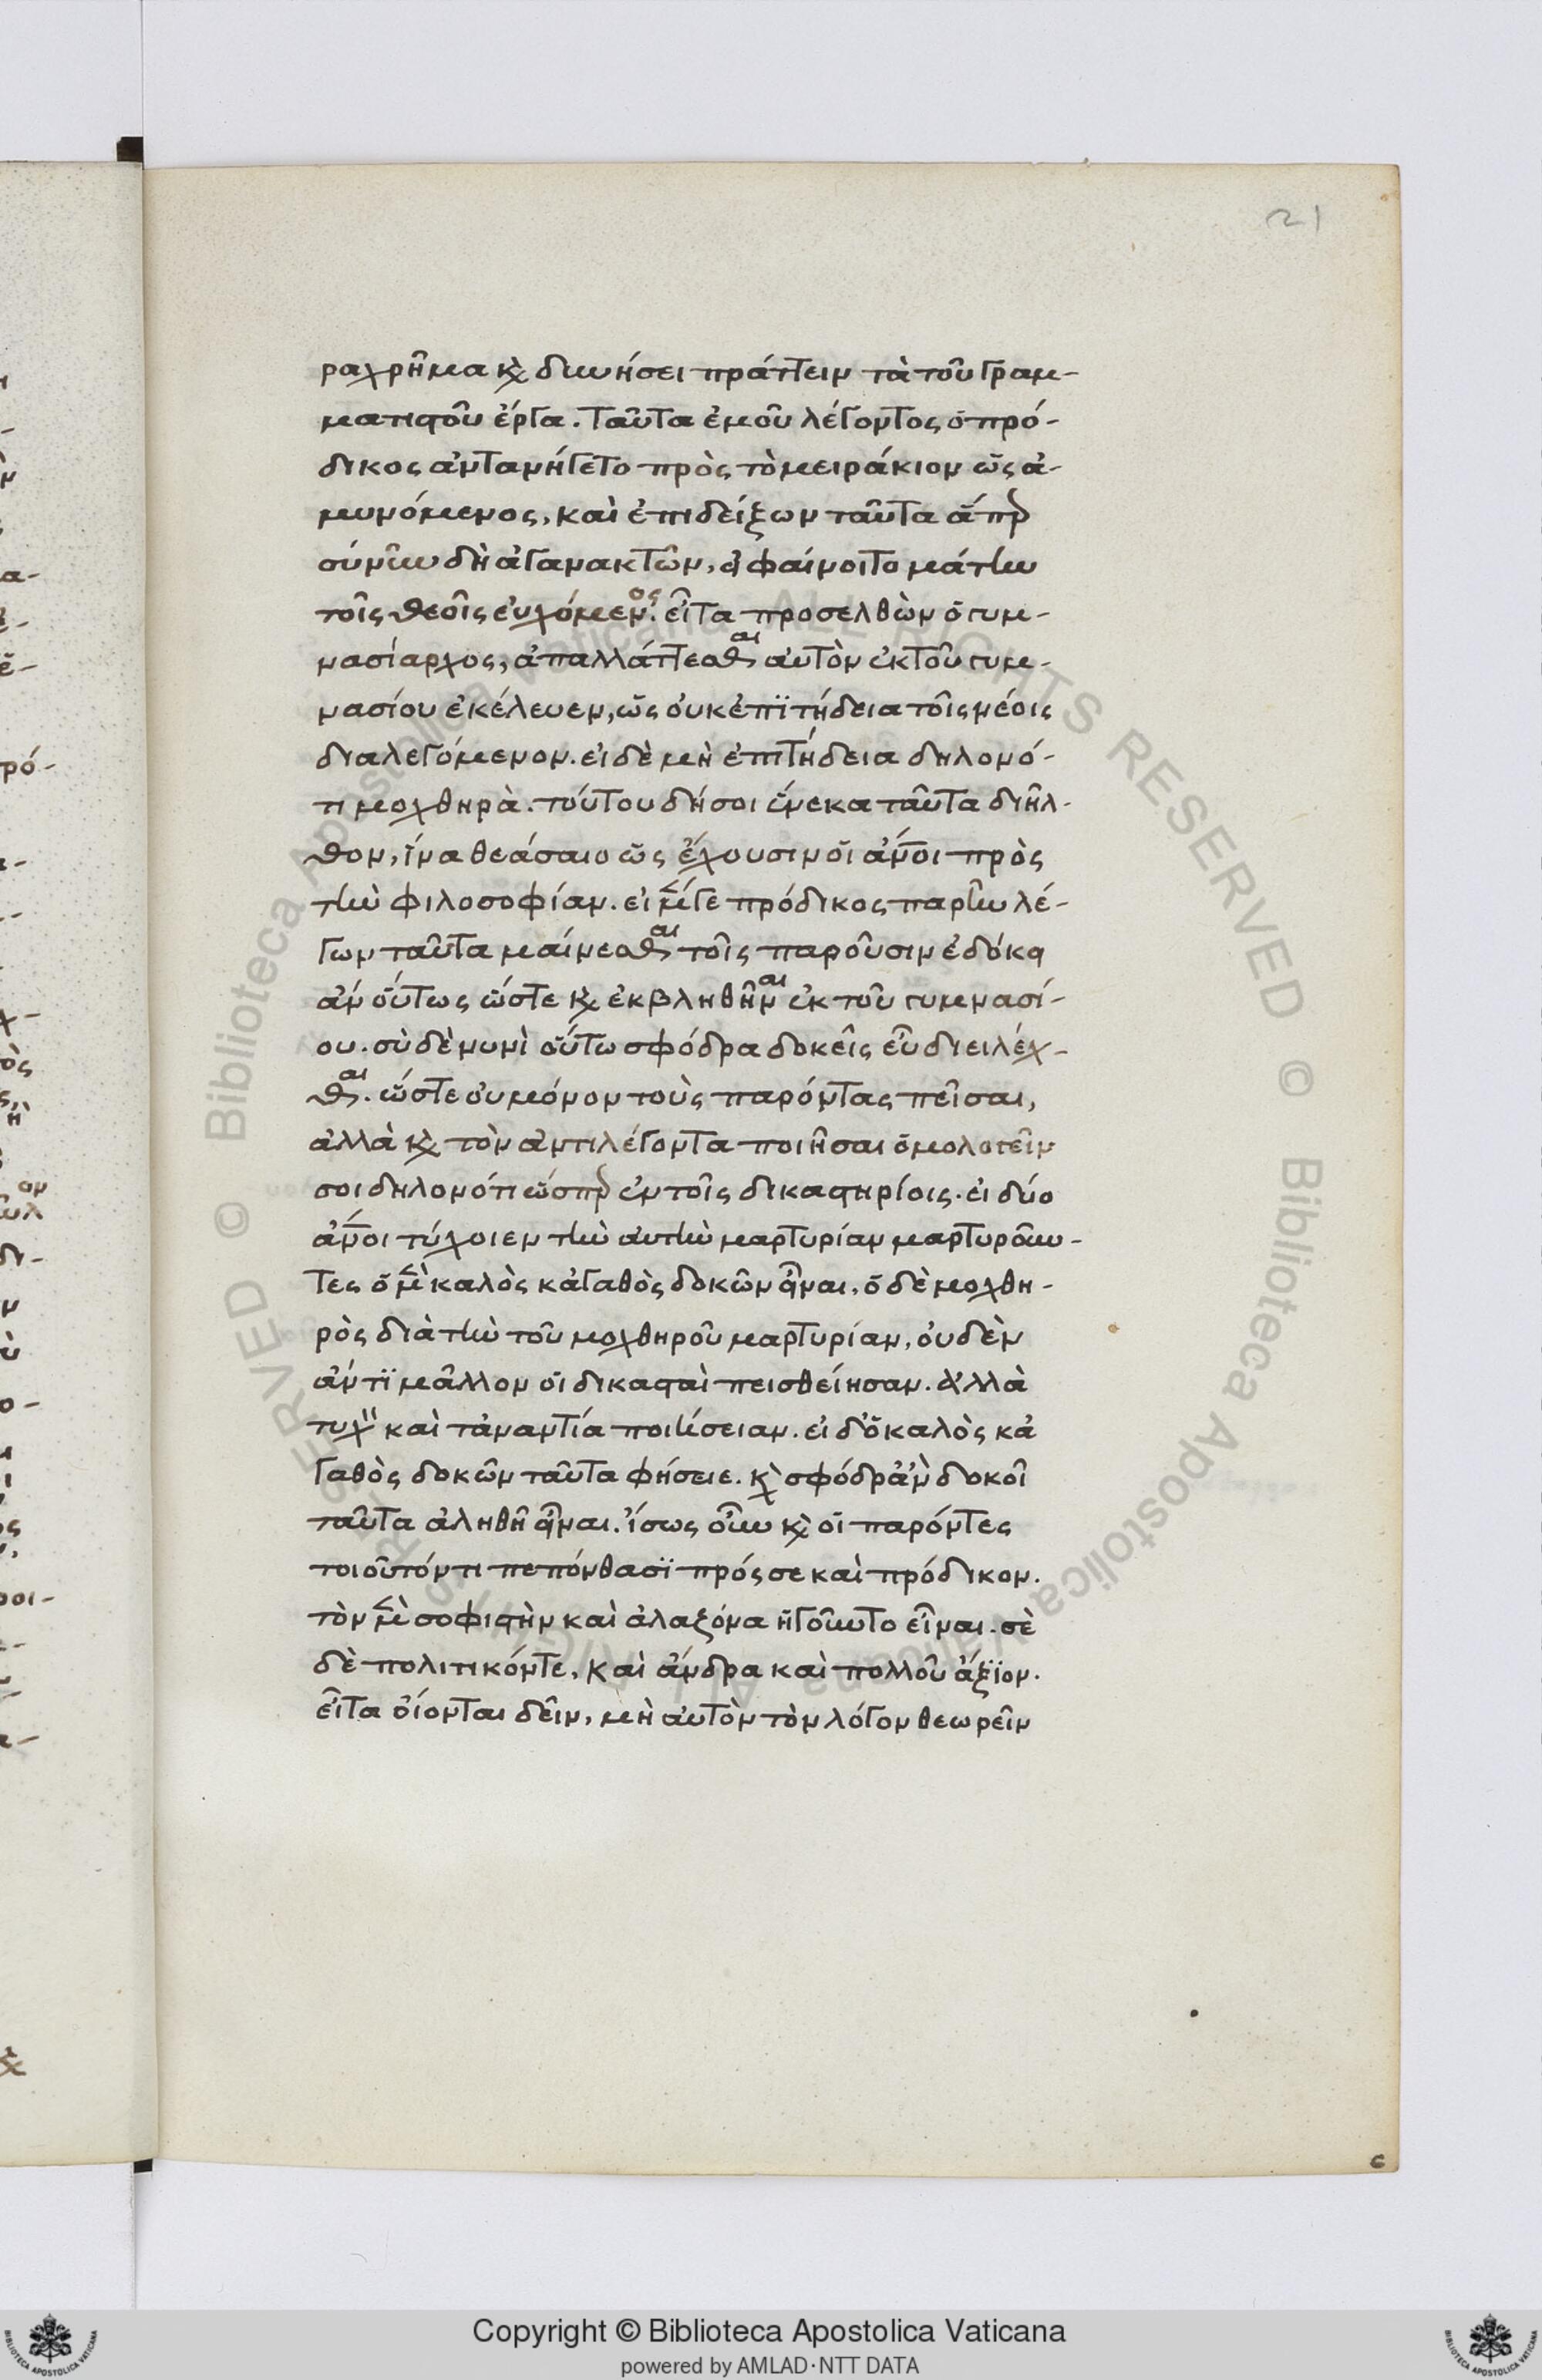 21
ραχρῆμα κὶ δυνήσει πράττειν τὰ τοῦ γραμ-
ματιϛοῦ ἔργα. ταῦτα ἐμοῦ λέγοντος ὁ πρό-
δικος ἀνταμήγετο πρὸς τὸ μειράκιον ὡς ἀ-
μυνόμενος, καὶ ἐπιδείξων ταῦτα ἅπερ
σύνῦν δὴ ἀγανακτῶν, εἰ φαίνοιτο μάτην
τοῖς θεοῖς εὐχόμενος. εἶτα προσελθὼν ὁ γυμ-
νασίαρχος, ἀπαλλάττεσθαι αὐτὸν ἐκ τοῦ γυμ-
νασίου ἐκέλευεν, ὡς οὐκ ἐπϊτήδεια τοῖς νέοις
διαλεγόμενον. εἰ δὲ μὴ ἐπιτήδεια δηλονό-
τι μοχθηρὰ. τούτου δή σοι ἕνεκα ταῦτα διῆλ-
θον, ἵνα θεάσαιο ὡς ἔχουσιν οἱ ἄνοι πρὸς
τὴν φιλοσοφίαν. εἰ μέν γε πρόδικος παρῆν λέ-
γων ταῦτα μαίνεσθαι τοῖς παροῦσιν ἐδόκει
ἄν οὕτως ὥστε κὶ ἐκβληθῆναι ἐκ τοῦ γυμνασί-
ου. σὺ δὲ νυνὶ οὕτω σφόδρα δοκεῖς εὖ διειλέχ-
θαι. ὥστε οὐ μόνον τοὺς παρόντας πεῖσαι,
ἀλλὰ κὶ τὸν ἀντιλέγοντα ποιῆσαι ὁμολογεῖν
σοι δηλονότι ὥσπερ ἐν τοῖς δικαϛηρίοις. εἰ δύο
ἄνοι τύχοιεν τὴν αὐτὴν μαρτυρίαν μαρτυροῦν-
τες ὁ μὲν καλὸς κἀγαθὸς δοκῶν εἶναι, ὁ δὲ μοχθη-
ρὸς διὰ τὴν τοῦ μοχθηροῦ μαρτυρίαν, οὐδὲν
ἄν τϊ μᾶλλον οἱ δικαϛαὶ πεισθείησαν. ἀλλὰ
τυχὸν καὶ τἀναντία ποιήσειαν. εἰ δ' ὁ καλὸς κἀ
γαθὸς δοκῶν ταῦτα φήσειε. κὶ σφόδρ' ἂν δοκοῖ
ταῦτα ἀληθῆ εἶναι. ἴσως οὖν κὶ οἱ παρόντες
τοιοῦτόν τι πεπόνθασϊ πρός σε καὶ πρόδικον.
τὸν μὲν σοφιϛὴν καὶ ἀλαζόνα ἡγοῦντο εἶναι. σὲ
δὲ πολιτικόν τε, καὶ ἄνδρα καὶ πολλοῦ ἄξϊον.
εἶτα οἴονται δεῖν, μὴ αὐτὸν τὸν λόγον θεωρεῖν
c
Copyright © Biblioteca Apostolica Vaticana
powered by AMLAD·NTT DATA